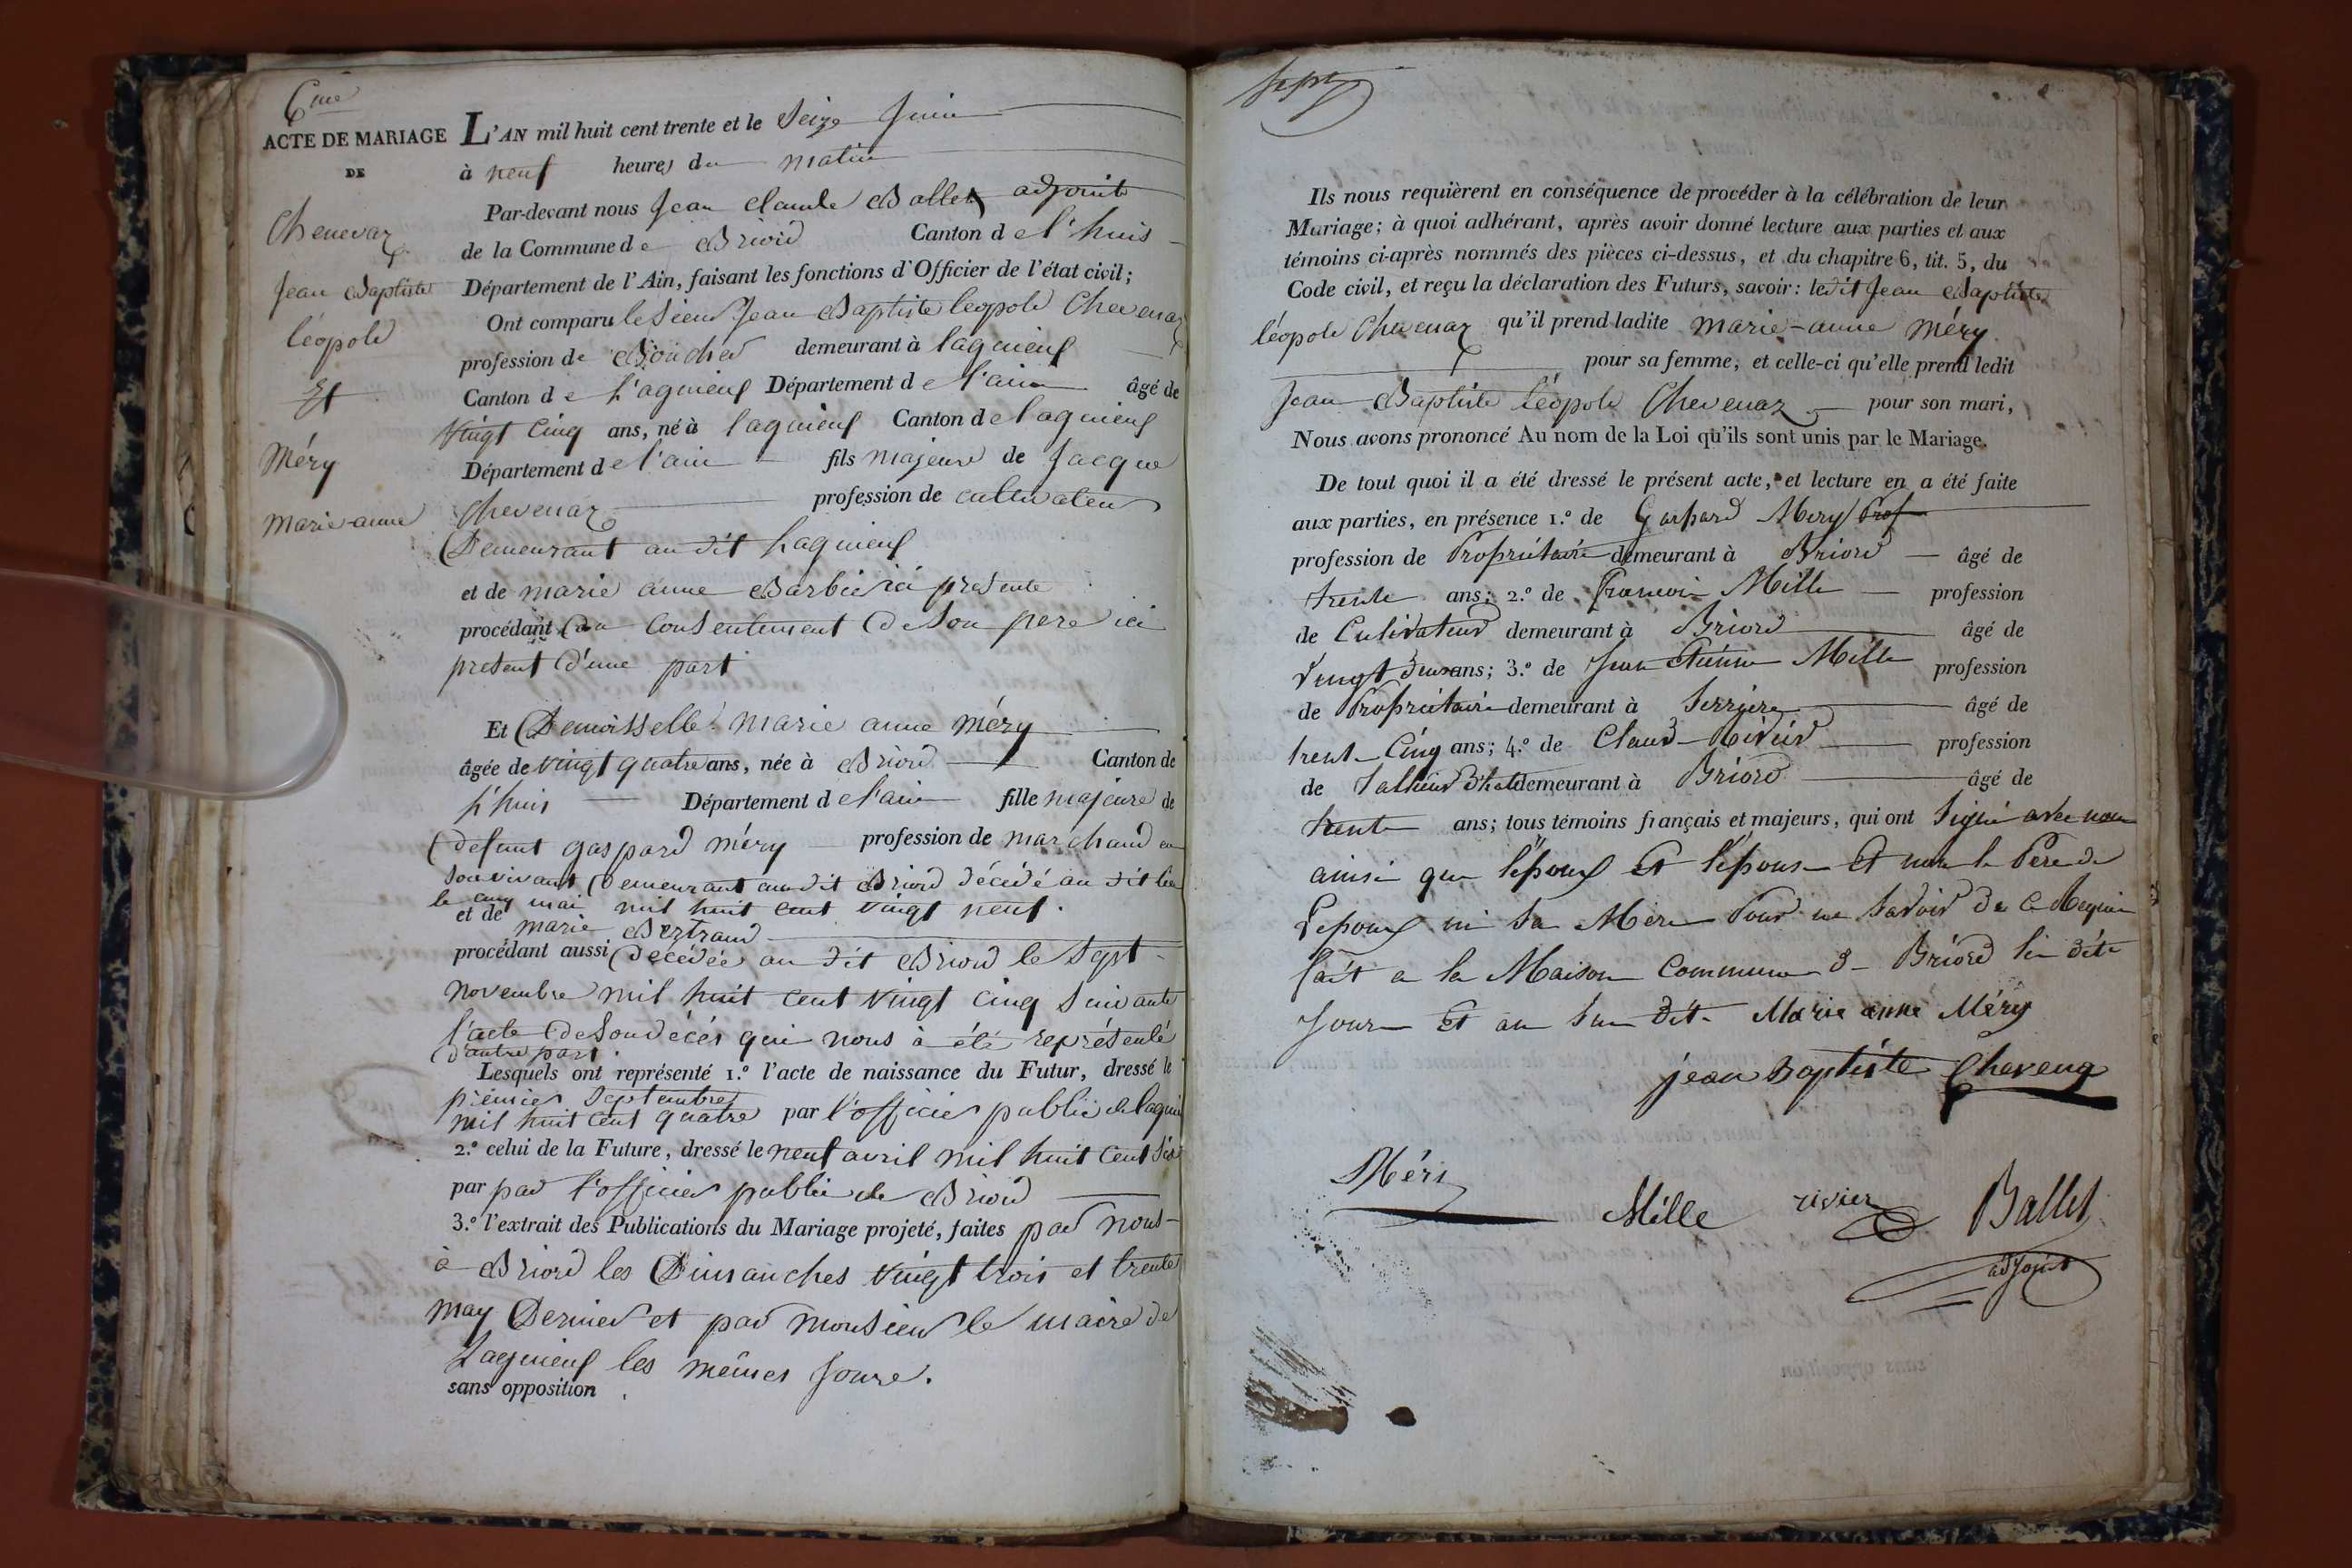 6me
ACTE DE MARIAGE
DE
Chevenaz
Jean Baptiste
léopold
Et
Méry
marie-anne
L'AN mil huit cent trente et le Seize Juin
à neuf heures du matin
Par-devant nous Jean claude Ballet adjoint
de la Commune de Briord Canton de l'huis
Département de l'Ain, faisant les fonctions d'Officier de l'état civil;
Ont comparu le Sieur Jean Baptiste léopold Chevenaz
profession de Boucher demeurant à lagnieux
Canton de Lagnieux Département de l'ain âgé de
vingt cinq ans, né à lagnieux Canton de lagnieux
Département de l'ain fils majeur de Jacque
Chevenaz profession de cultivateur
Demeurant au dit Lagnieux
et de marie anne Barbier ici presente
procédant du Consentement de Son pere ici
present d'une part
Et Demoisselle marie anne méry
âgée de vingt quatre ans, née à Briord Canton de
L'huis Département de l'ain fille majeure de
défunt gaspard méry profession de marchand en
Son vivant Demeurant au dit Briord décédé au dit lieu
le cinq mai mil huit cent vingt neuf.
et de marie Bertrand
procédant aussi décédée au dit Briord le Sept
novembre mil huit cent vingt cinq Suivante
l'acte de Son décés qui nous à été représenté
d'autre part.
Lesquels ont représenté 1.º l'acte de naissance du Futur, dressé le
prémier Septembre
mil huit cent quatre par l'officier public de lagnieu
2.º celui de la Future, dressé le neuf avril mil huit cent Six
par par l'officier public de Briord
3.º l'extrait des Publications du Mariage projeté, faites par nous
à Briord les Dimanches vingt trois et trente
may Dernier et par monsieur le maire de
Lagnieux les mêmes Jours.
sans opposition
Sept
Ils nous requièrent en conséquence de procéder à la célébration de leur
Mariage; à quoi adhérant, après avoir donné lecture aux parties et aux
témoins ci-après nommés des pièces ci-dessus, et du chapitre 6, tit. 5, du
Code civil, et reçu la déclaration des Futurs, savoir: ledit Jean Baptiste
léopold Chevenaz qu'il prend ladite marie-anne méry
pour sa femme, et celle-ci qu'elle prend ledit
Jean Baptiste léopold Chevenaz pour son mari,
Nous avons prononcé Au nom de la Loi qu'ils sont unis par le Mariage.
De tout quoi il a été dressé le présent acte, et lecture en a été faite
aux parties, en présence 1.º de Gaspard Mery Prof
profession de Propriétaire demeurant à Briord âgé de
trente ans; 2.º de francois Mille profession
de Cultivateur demeurant à Briord âgé de
Vingt deux ans; 3.º de Jean Etienne Mille profession
de Propriétaire demeurant à Serriere âgé de
trent Cinq ans; 4.º de Claud Rivier profession
de Tallieur d'habit demeurant à Briord âgé de
trente ans; tous témoins français et majeurs, qui ont Signé avec nous
ainsi que l'époux Et l'épouse Et non le Pere de
L'epoux ni Sa Mere Pour ne Savoir De Ce Requis
fait a la Maison Commune de Briord les dits
Jour Et an Sus dit. Marie anne Méry
jean Baptiste Chevena
Méri
Mille
rivier
Ballet
adjoint